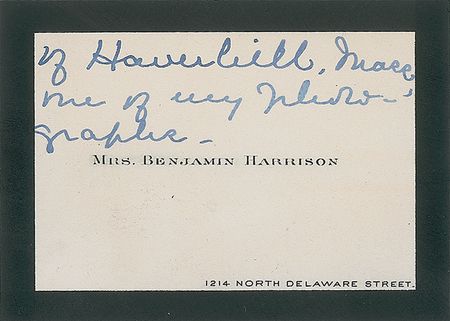 of Haverhill, Mass,
one of my photo-
graphs -
MRS. BENJAMIN HARRISON
1214 NORTH DELAWARE STREET.